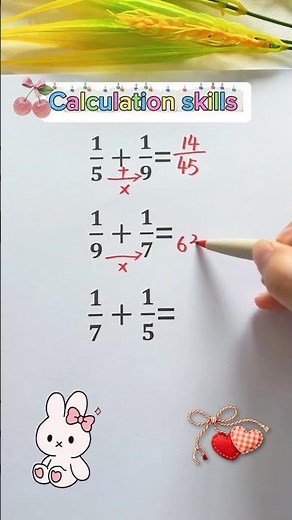 Calculation skills
1/5 + 1/9 = 14/45
+
×
1/9 + 1/7 = 6
×
1/7 + 1/5 =